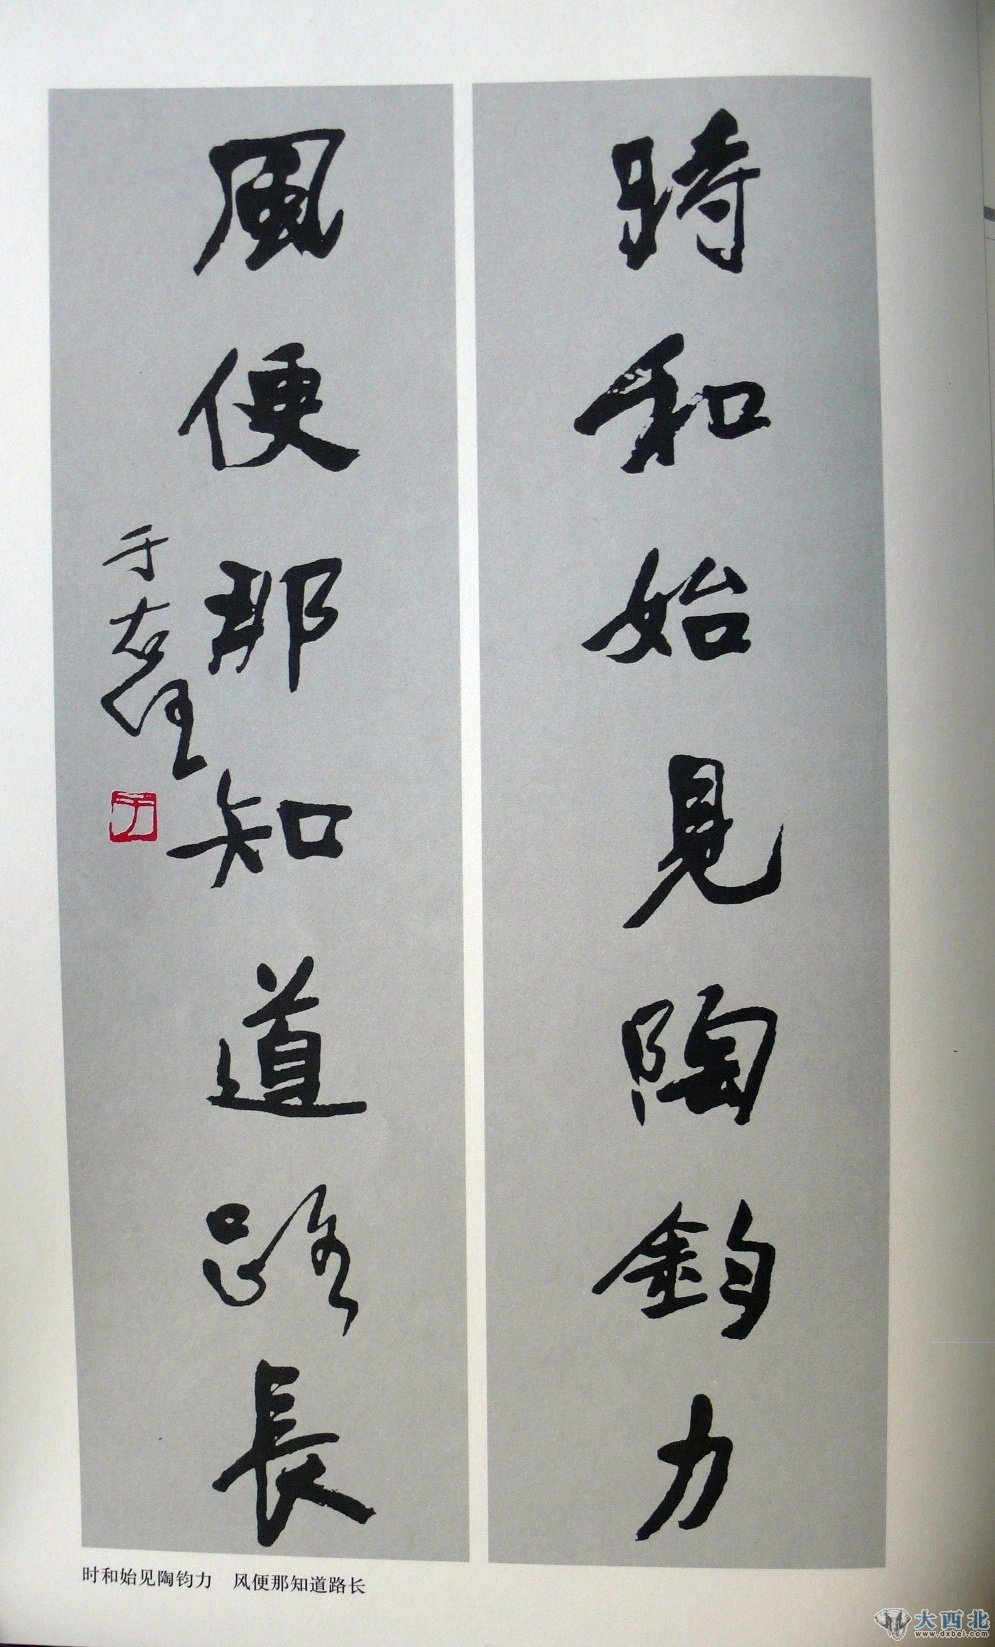 時和始見陶鈞力
風便那知道路長
于右任
于
时和始见陶钧力　风便那知道路长
大西北
www.dxbei.com